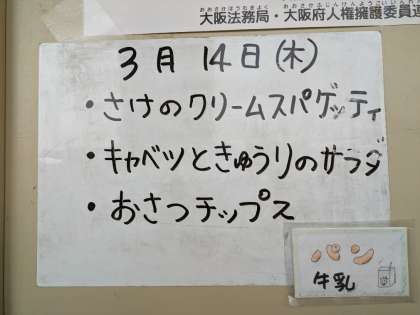 大阪法務局・大阪府人権擁護委員連
3月14日(木)
・さけのクリームスパゲッティ
・キャベツときゅうりのサラダ
・おさつチップス
パン
牛乳